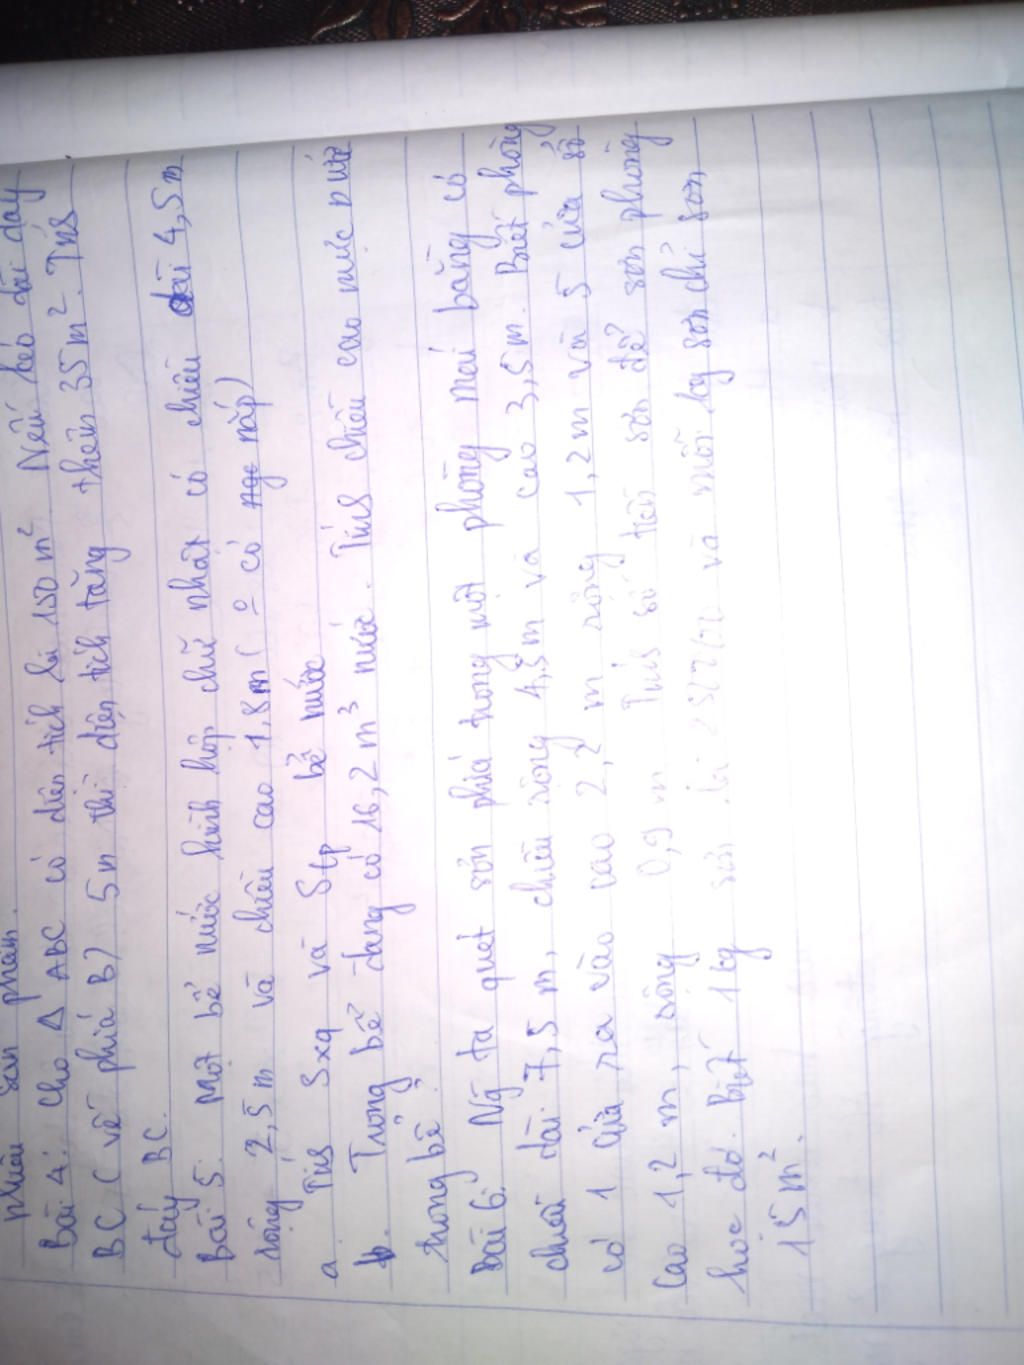 phẩm.
Bài 4: Cho Δ ABC có diện tích là 150 m². Nếu kéo dài đáy
BC (về phía B) 5m thì diện tích tăng thêm 35 m². Tính
đáy BC.
Bài 5. Một bể nước hình hộp chữ nhật có chiều dài 4,5m
rộng 2,5m và chiều cao 1,8m ( có nắp)
a. Tính Sxq và Stp bể nước
b. Trong bể đang có 16,2 m³ nước. Tính chiều cao mức nước
trong bể?
Bài 6. Ng ta quét sơn phía trong một phòng mái bằng có
chiều dài 7,5 m, chiều rộng 4,5m và cao 3,5m. Biết phòng
có 1 cửa ra vào cao 2,2 m rộng 1,2m và 5 cửa sổ
cao 1,2 m, rộng 0,9 m Tính số tiền sơn để sơn phòng
học đó. Biết 1kg sơn là và mỗi kg sơn chỉ sơn
15m².